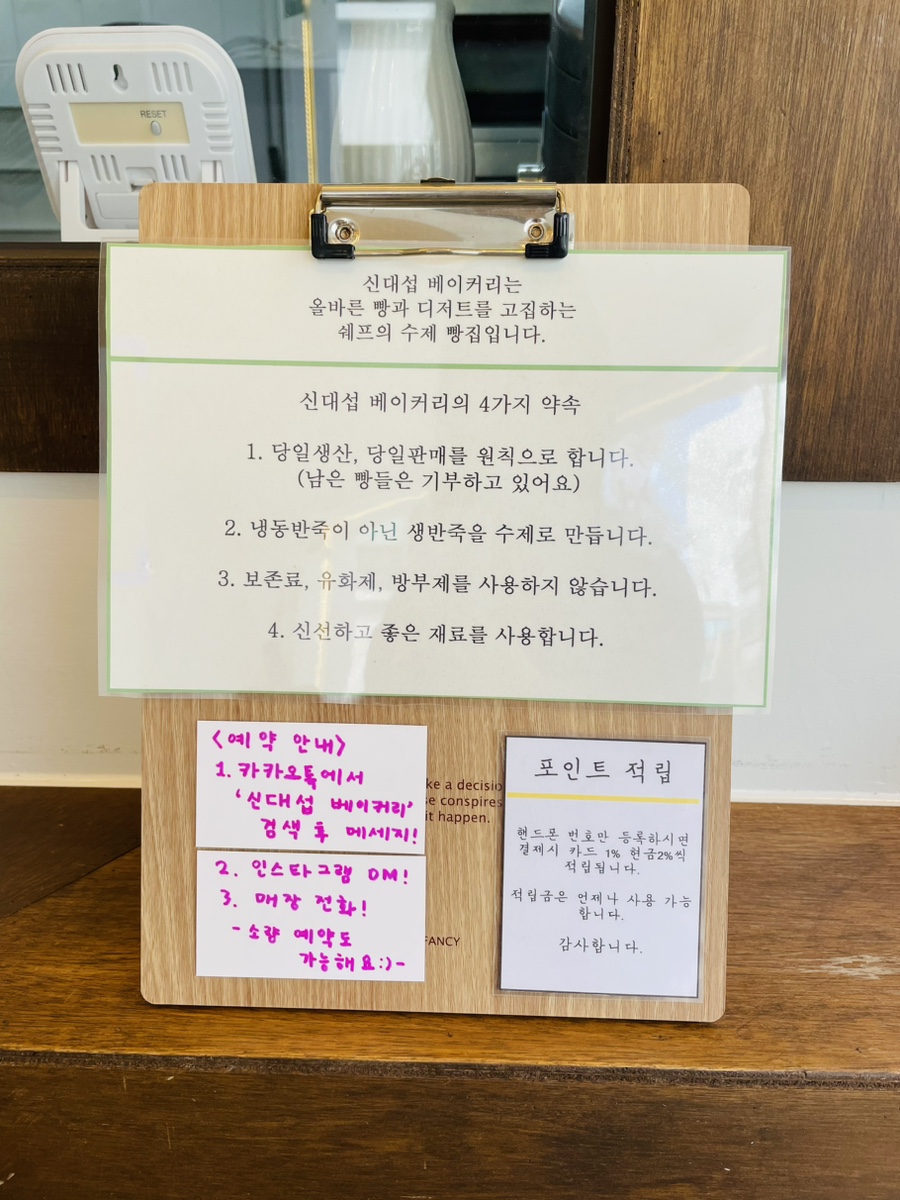 RESET
신대섭 베이커리는
올바른 빵과 디저트를 고집하는
쉐프의 수제 빵집입니다.
신대섭 베이커리의 4가지 약속
1. 당일생산, 당일판매를 원칙으로 합니다.
(남은 빵들은 기부하고 있어요)
2. 냉동반죽이 아닌 생반죽을 수제로 만듭니다.
3. 보존료, 유화제, 방부제를 사용하지 않습니다.
4. 신선하고 좋은 재료를 사용합니다.
<예약 안내>
1. 카카오톡에서
'신대섭 베이커리'
검색 후 메세지!
2. 인스타그램 DM!
3. 매장 전화!
- 소량 예약도
가능해요:)-
ke a decisio
se conspires
it happen.
FANCY
포인트 적립
핸드폰 번호만 등록하시면
결제시 카드 1% 현금2%씩
적립됩니다.
적립금은 언제나 사용 가능
합니다.
감사합니다.